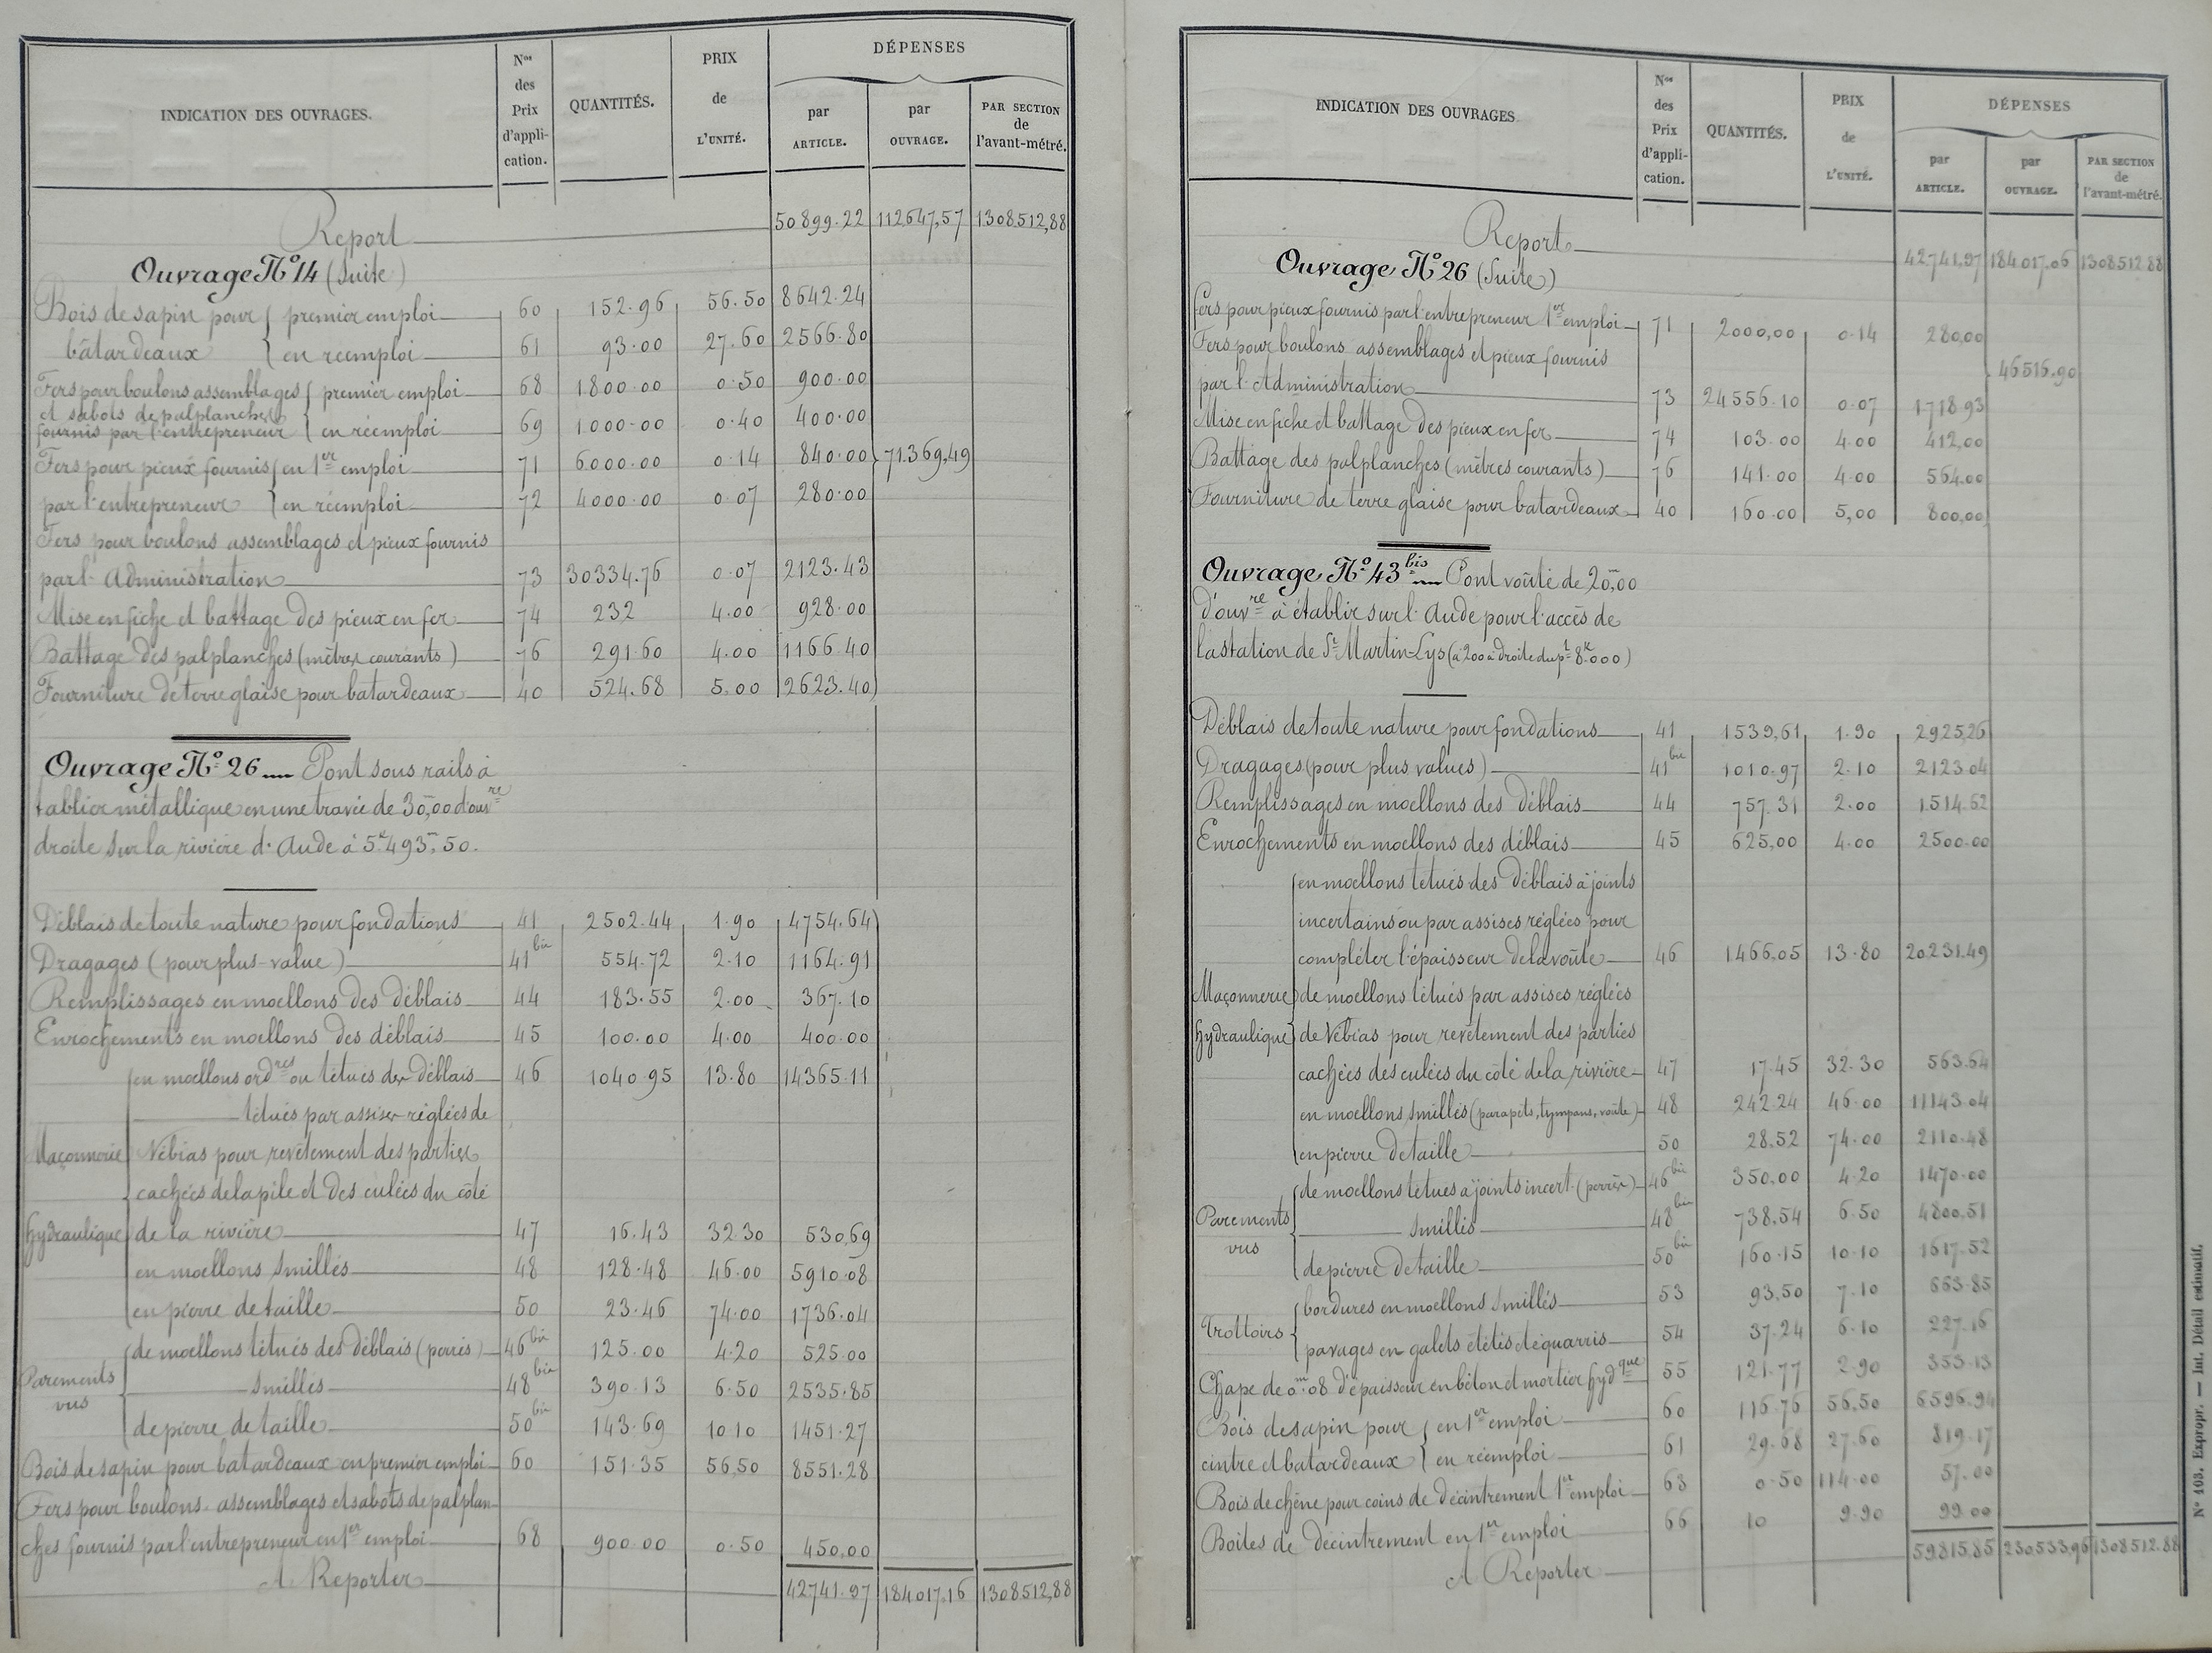 INDICATION DES OUVRAGES. Nos des Prix d'appli- cation. QUANTITÉS. PRIX de L'UNITÉ. DÉPENSES par ARTICLE. par OUVRAGE. PAR SECTION de l'avant-métré.
Report 50899.22 112647,57 1308512,88
Ouvrage No 14 (Suite)
Bois de sapin pour { premier emploi 60 152.96 56.50 8642.24
bâtardeaux { en réemploi 61 93.00 27.60 2566.80
Fers pour boulons assemblages { premier emploi 68 1800.00 0.50 900.00
et sabots de palplanches
fournis par l'entrepreneur { en réemploi 69 1000.00 0.40 400.00
Fers pour pieux fournis { en 1er emploi 71 6000.00 0.14 840.00 71.369,49
par l'entrepreneur { en réemploi 72 4000.00 0.07 280.00
Fers pour boulons assemblages et pieux fournis
par l'Administration 73 30334.76 0.07 2123.43
Mise en fiche et battage des pieux en fer 74 232 4.00 928.00
Battage des palplanches (mètres courants) 76 291.60 4.00 1166.40
Fourniture de terre glaise pour batardeaux 40 524.68 5.00 2623.40
Ouvrage No 26 Pont sous rails à
tablier métallique en une travée de 30m,00 d'ouvre
droite sur la rivière d'Aude à 5k493m,50.
Déblais de toute nature pour fondations 41 2502.44 1.90 4754.64
Dragages (pour plus-value) 41bis 554.72 2.10 1164.91
Remplissages en moellons des déblais 44 183.55 2.00 367.10
Enrochements en moellons des déblais 45 100.00 4.00 400.00
en moellons ordres ou têtués des déblais 46 1040.95 13.80 14365.11
têtués par assises réglées de
Maçonnerie Nébias pour revêtement des parties
cachées de la pile et des culées du côté
hydraulique de la rivière 47 16.43 32.30 530,69
en moellons smillés 48 128.48 46.00 5910.08
en pierre de taille 50 23.46 74.00 1736.04
de moellons têtués des déblais (perrés) 46bis 125.00 4.20 525.00
Parements vus smillés 48bis 390.13 6.50 2535.85
de pierre de taille 50bis 143.69 10.10 1451.27
Bois de sapin pour batardeaux en premier emploi 60 151.35 56,50 8551.28
Fers pour boulons assemblages et sabots de palplan-
ches fournis par l'entrepreneur en 1er emploi 68 900.00 0.50 450,00
A Reporter 42741.97 184017.16 1308512,88
INDICATION DES OUVRAGES Nos des Prix d'appli- cation. QUANTITÉS. PRIX de L'UNITÉ. DÉPENSES par ARTICLE. par OUVRAGE. PAR SECTION de l'avant-métré.
Report 42741,97 184017.06 1308512.88
Ouvrage No 26 (Suite)
Fers pour pieux fournis par l'entrepreneur 1er emploi 71 2000,00 0.14 280,00
Fers pour boulons assemblages et pieux fournis 46516.90
par l'Administration 73 24556.10 0.07 1718.93
Mise en fiche et battage des pieux en fer 74 103.00 4.00 412,00
Battage des palplanches (mètres courants) 76 141.00 4.00 564.00
Fourniture de terre glaise pour batardeaux 40 160.00 5,00 800,00
Ouvrage No 43bis Pont voûté de 20m,00
d'ouvre à établir sur l'Aude pour l'accès de
la station de St Martin-Lys (à 200m à droite du pt 8k.000)
Déblais de toute nature pour fondations 41 1539,61 1.90 2925,26
Dragages (pour plus values) 41bis 1010.97 2.10 2123.04
Remplissages en moellons des déblais 44 757.31 2.00 1514.62
Enrochements en moellons des déblais 45 625,00 4.00 2500.00
en moellons têtués des déblais à joints
incertains ou par assises réglées pour
compléter l'épaisseur de la voûte 46 1466.05 13.80 20.231.49
Maçonnerie de moellons têtués par assises réglées
hydraulique de Nébias pour revêtement des parties
cachées des culées du côté de la rivière 47 17.45 32.30 563.64
en moellons smillés (parapets, tympans, voûte) 48 242.24 46.00 11143.04
en pierre de taille 50 28.52 74.00 2110.48
de moellons têtués à joints incert. (perrés) 46bis 350.00 4.20 1470.00
Parements vus smillés 48bis 738.54 6.50 4800.51
de pierre de taille 50bis 160.15 10.10 1617.52
bordures en moellons smillés 53 93.50 7.10 663.85
Trottoirs
pavages en galets étêtés et équarris 54 37.24 6.10 227.16
Chape de 0m.08 d'épaisseur en béton et mortier hydque 55 121.77 2.90 353.13
Bois de sapin pour { en 1er emploi 60 116.76 56.50 6596.94
cintre et batardeaux { en réemploi 61 29.68 27.60 819.17
Bois de chêne pour coins de décintrement 1er emploi 63 0.50 114.00 57.00
Boites de décintrement en 1er emploi 66 10 9.90 99.00
A Reporter 59815,85 230533,96 1308512.88
N° 103. Expropr. — Int. Détail estimatif.